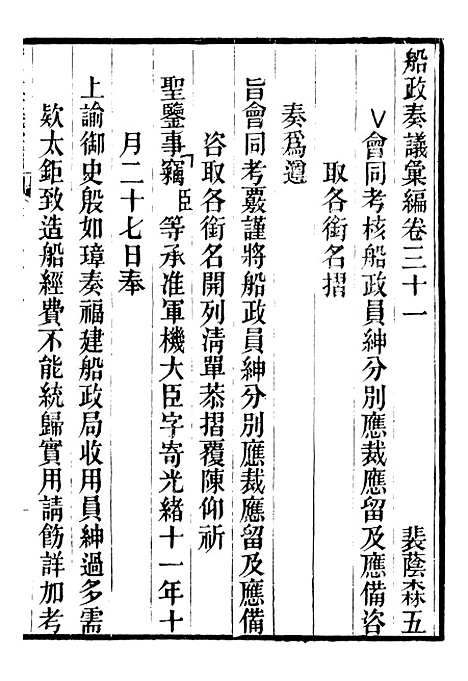 船政奏議彙編卷三十一 裴蔭森五
會同考核船政員紳分別應裁應留及應備咨
取各銜名摺
奏爲遵
旨會同考覈謹將船政員紳分別應裁應留及應備
咨取各銜名開列清單恭摺覆陳仰祈
聖鑒事竊臣等承准軍機大臣字寄光緒十一年十
月二十七日奉
上諭御史殷如璋奏福建船政局收用員紳過多需
欵太鉅致造船經費不能統歸實用請飭詳加考